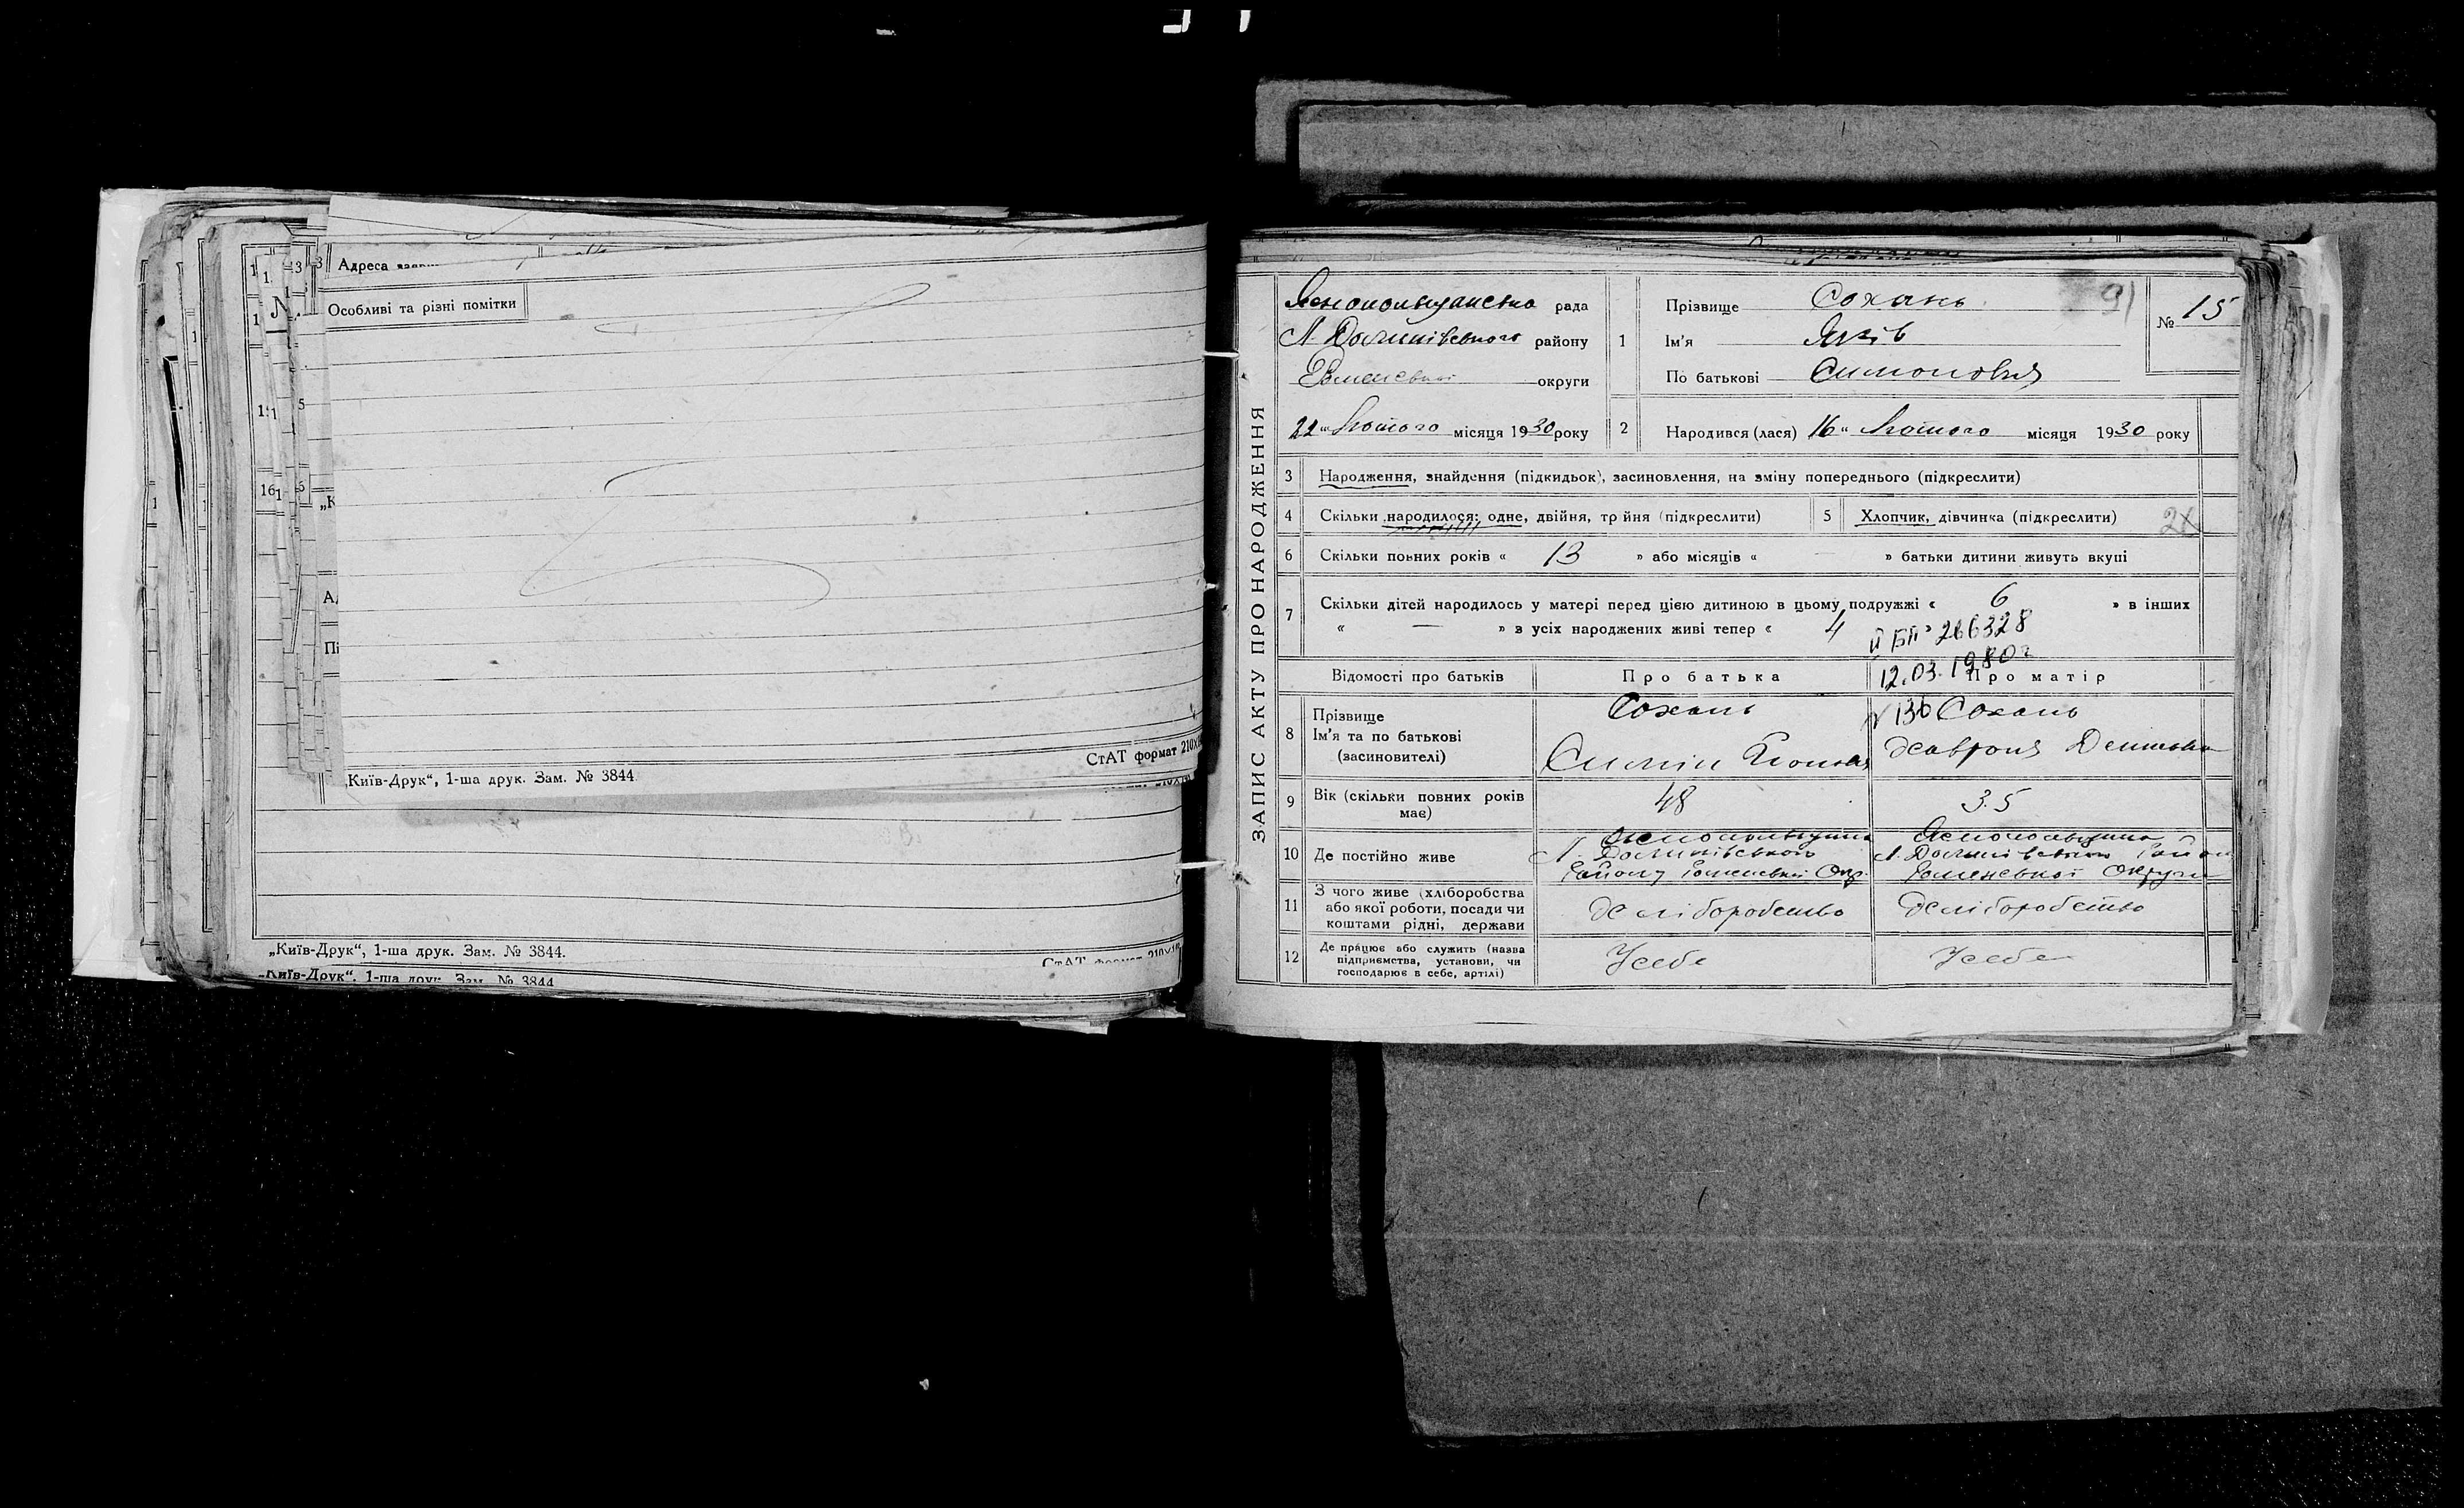 Адреса
Особливі та різні помітки
СтАТ формат 210×
„Київ-Друк“, 1-ша друк. Зам. № 3844
„Київ-Друк“, 1-ша друк. Зам. № 3844.
„Київ-Друк“. 1-ша друк. Зам. № 3844
ЗАПИС АКТУ ПРО НАРОДЖЕННЯ
рада
Л. Долинівського району
Роменської округи
22 „ Лютого місяця 1930 року
91
№ 15
1 Прізвище Сохань
Ім'я Яків
По батькові Симонович
2 Народився (лася) 16 „ Лютого місяця 1930 року
3 Народження, знайдення (підкидьок), засиновлення, на зміну попереднього (підкреслити)
4 Скільки народилося: одне, двійня, тройня (підкреслити) 5 Хлопчик, дівчинка (підкреслити)
6 Скільки повних років « 13 » або місяців « — » батьки дитини живуть вкупі
7 Скільки дітей народилось у матері перед цією дитиною в цьому подружжі « 6 » в інших
« — » з усіх народжених живі тепер « 4
ІІ БП № 266328
12.03.1980 г
№ 136
Відомості про батьків Про батька Про матір
8 Прізвище Ім'я та по батькові (засиновителі) Сохань Сохань
Симон Хавроня
9 Вік (скільки повних років має) 48 35
10 Де постійно живе
Л. Долинівського Л. Долинівського Район
Району Роменської Окр. Роменської Округи
11 З чого живе (хліборобства або якої роботи, посади чи коштами рідні, держави Хліборобство Хліборобство
12 Де працює або служить (назва підприємства, установи, чи господарює в себе, артілі) У себе У себе